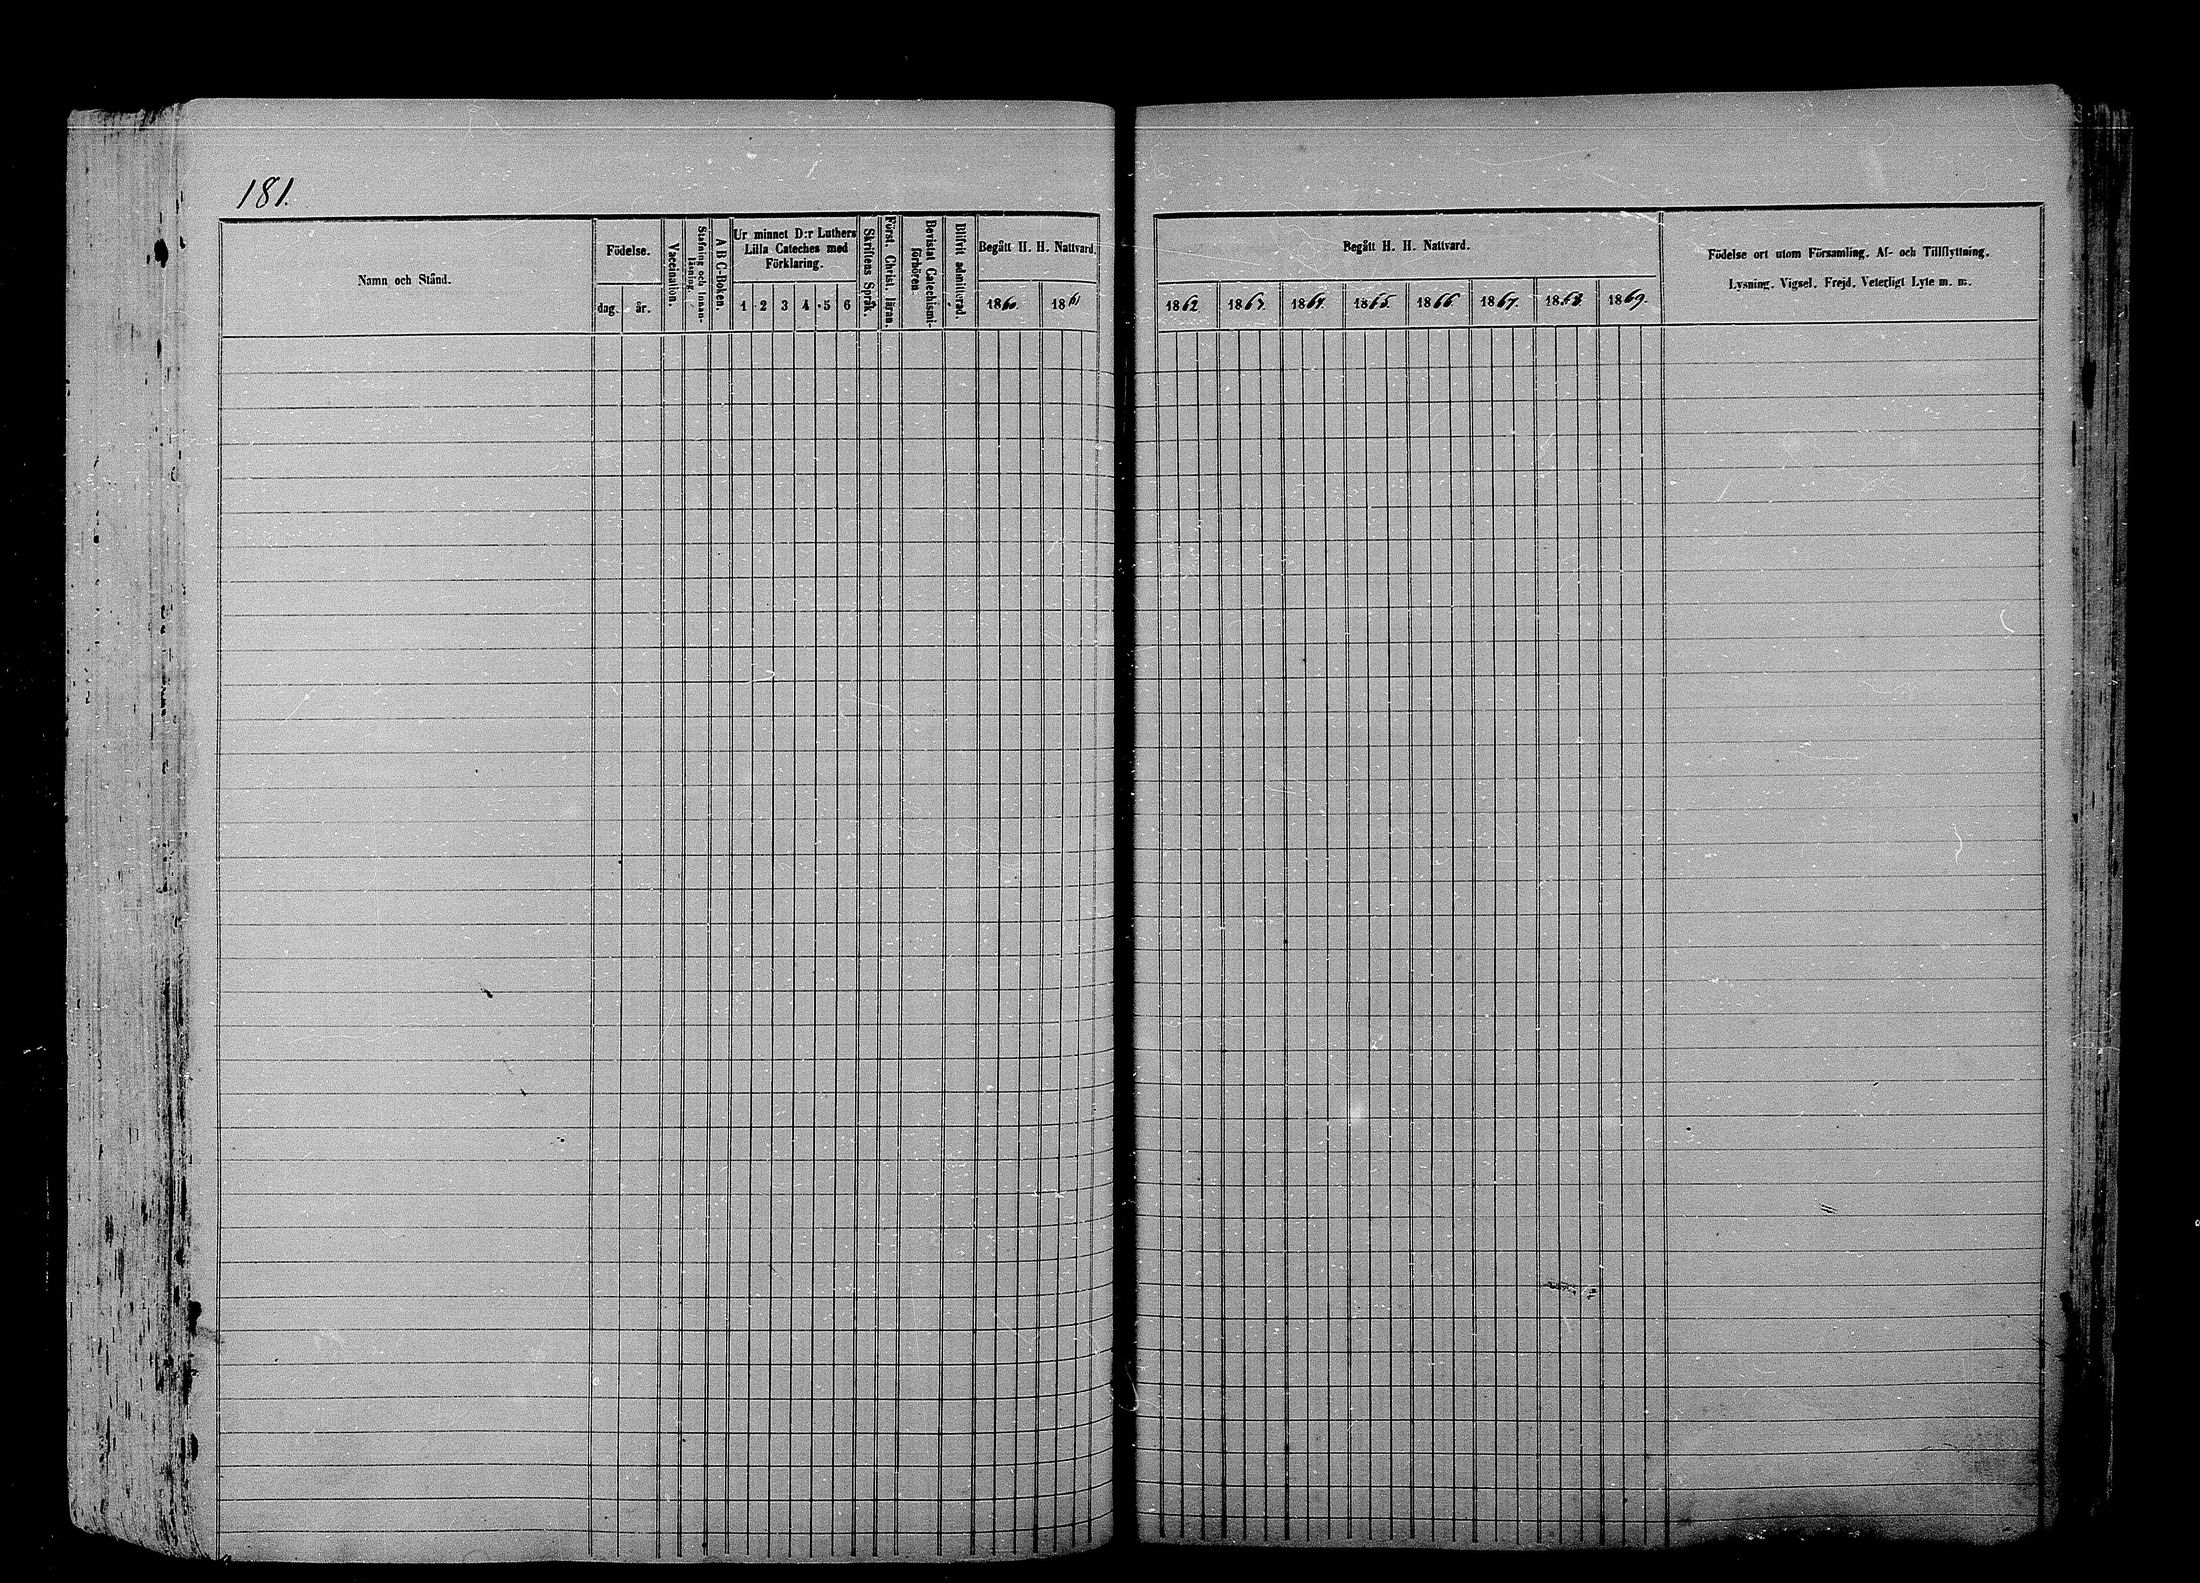 181.
Namn och Stånd.
Födelse.
dag.
år.
Vaccination.
Stafning och Innan-
läsning.
A B C-Boken.
Ur minnet D:r Luthers
Lilla Cateches med
Förklaring.
1 2 3 4 5 6
Skriftens Språk.
Först. Christ. läran.
Bevistat Catechismi-
förhören.
Blifvit admitterad.
Begått H. H. Nattvard.
1860.
1861
Begått H. H. Nattvard.
1862
1863.
1864.
1865.
1866
1867.
1868
1869.
Födelse ort utom Församling. Af- och Tillflyttning.
Lysning. Vigsel. Frejd. Veterligt Lyte m. m.